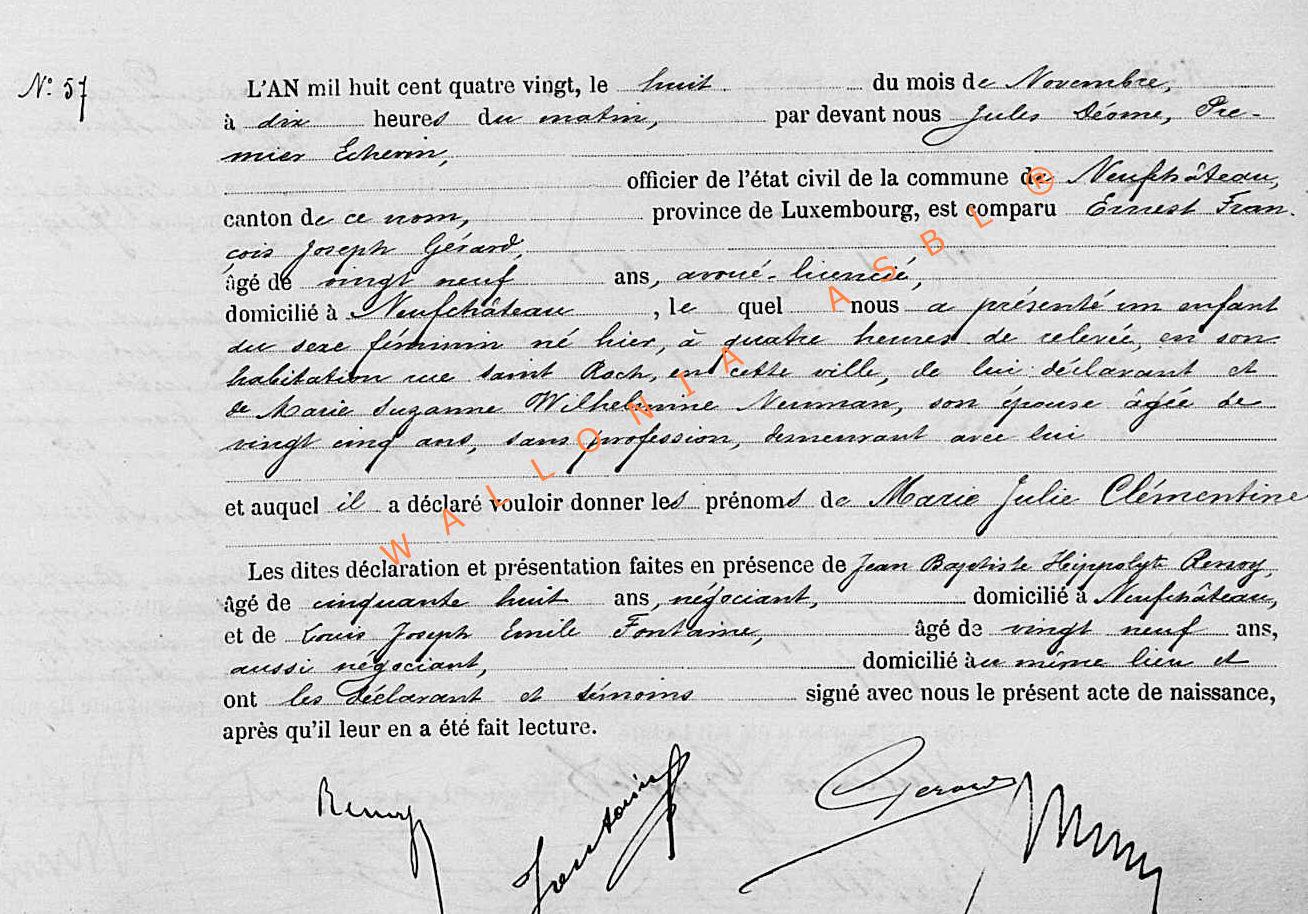 N° 57
L'AN mil huit cent quatre vingt, le huit du mois de Novembre,
à dix heures du matin, par devant nous Jules Déome, Pre-
mier Echevin,
officier de l'état civil de la commune de Neufchâteau,
canton de ce nom, province de Luxembourg, est comparu Ernest Fran-
çois Joseph Gérard,
âgé de vingt neuf ans, avoué-licencié,
domicilié à Neufchâteau, le quel nous a présenté un enfant
du sexe féminin né hier, à quatre heures de relevée, en son
habitation rue Saint Roch, en cette ville, de lui déclarant et
de Marie Suzanne Wilhelmine Neuman, son épouse âgée de
vingt cinq ans, sans profession, demeurant avec lui
et auquel il a déclaré vouloir donner les prénoms de Marie Julie Clémentine
Les dites déclaration et présentation faites en présence de Jean Baptiste Hippolyte
âgé de cinquante huit ans, négociant, domicilié à Neufchâteau,
et de Louis Joseph Emile Fontaine, âgé de vingt neuf ans,
aussi négociant, domicilié au même lieu et
ont les déclarant et témoins signé avec nous le présent acte de naissance,
après qu'il leur en a été fait lecture.
Fontaine Gérard
WALLONIA ASBL ®